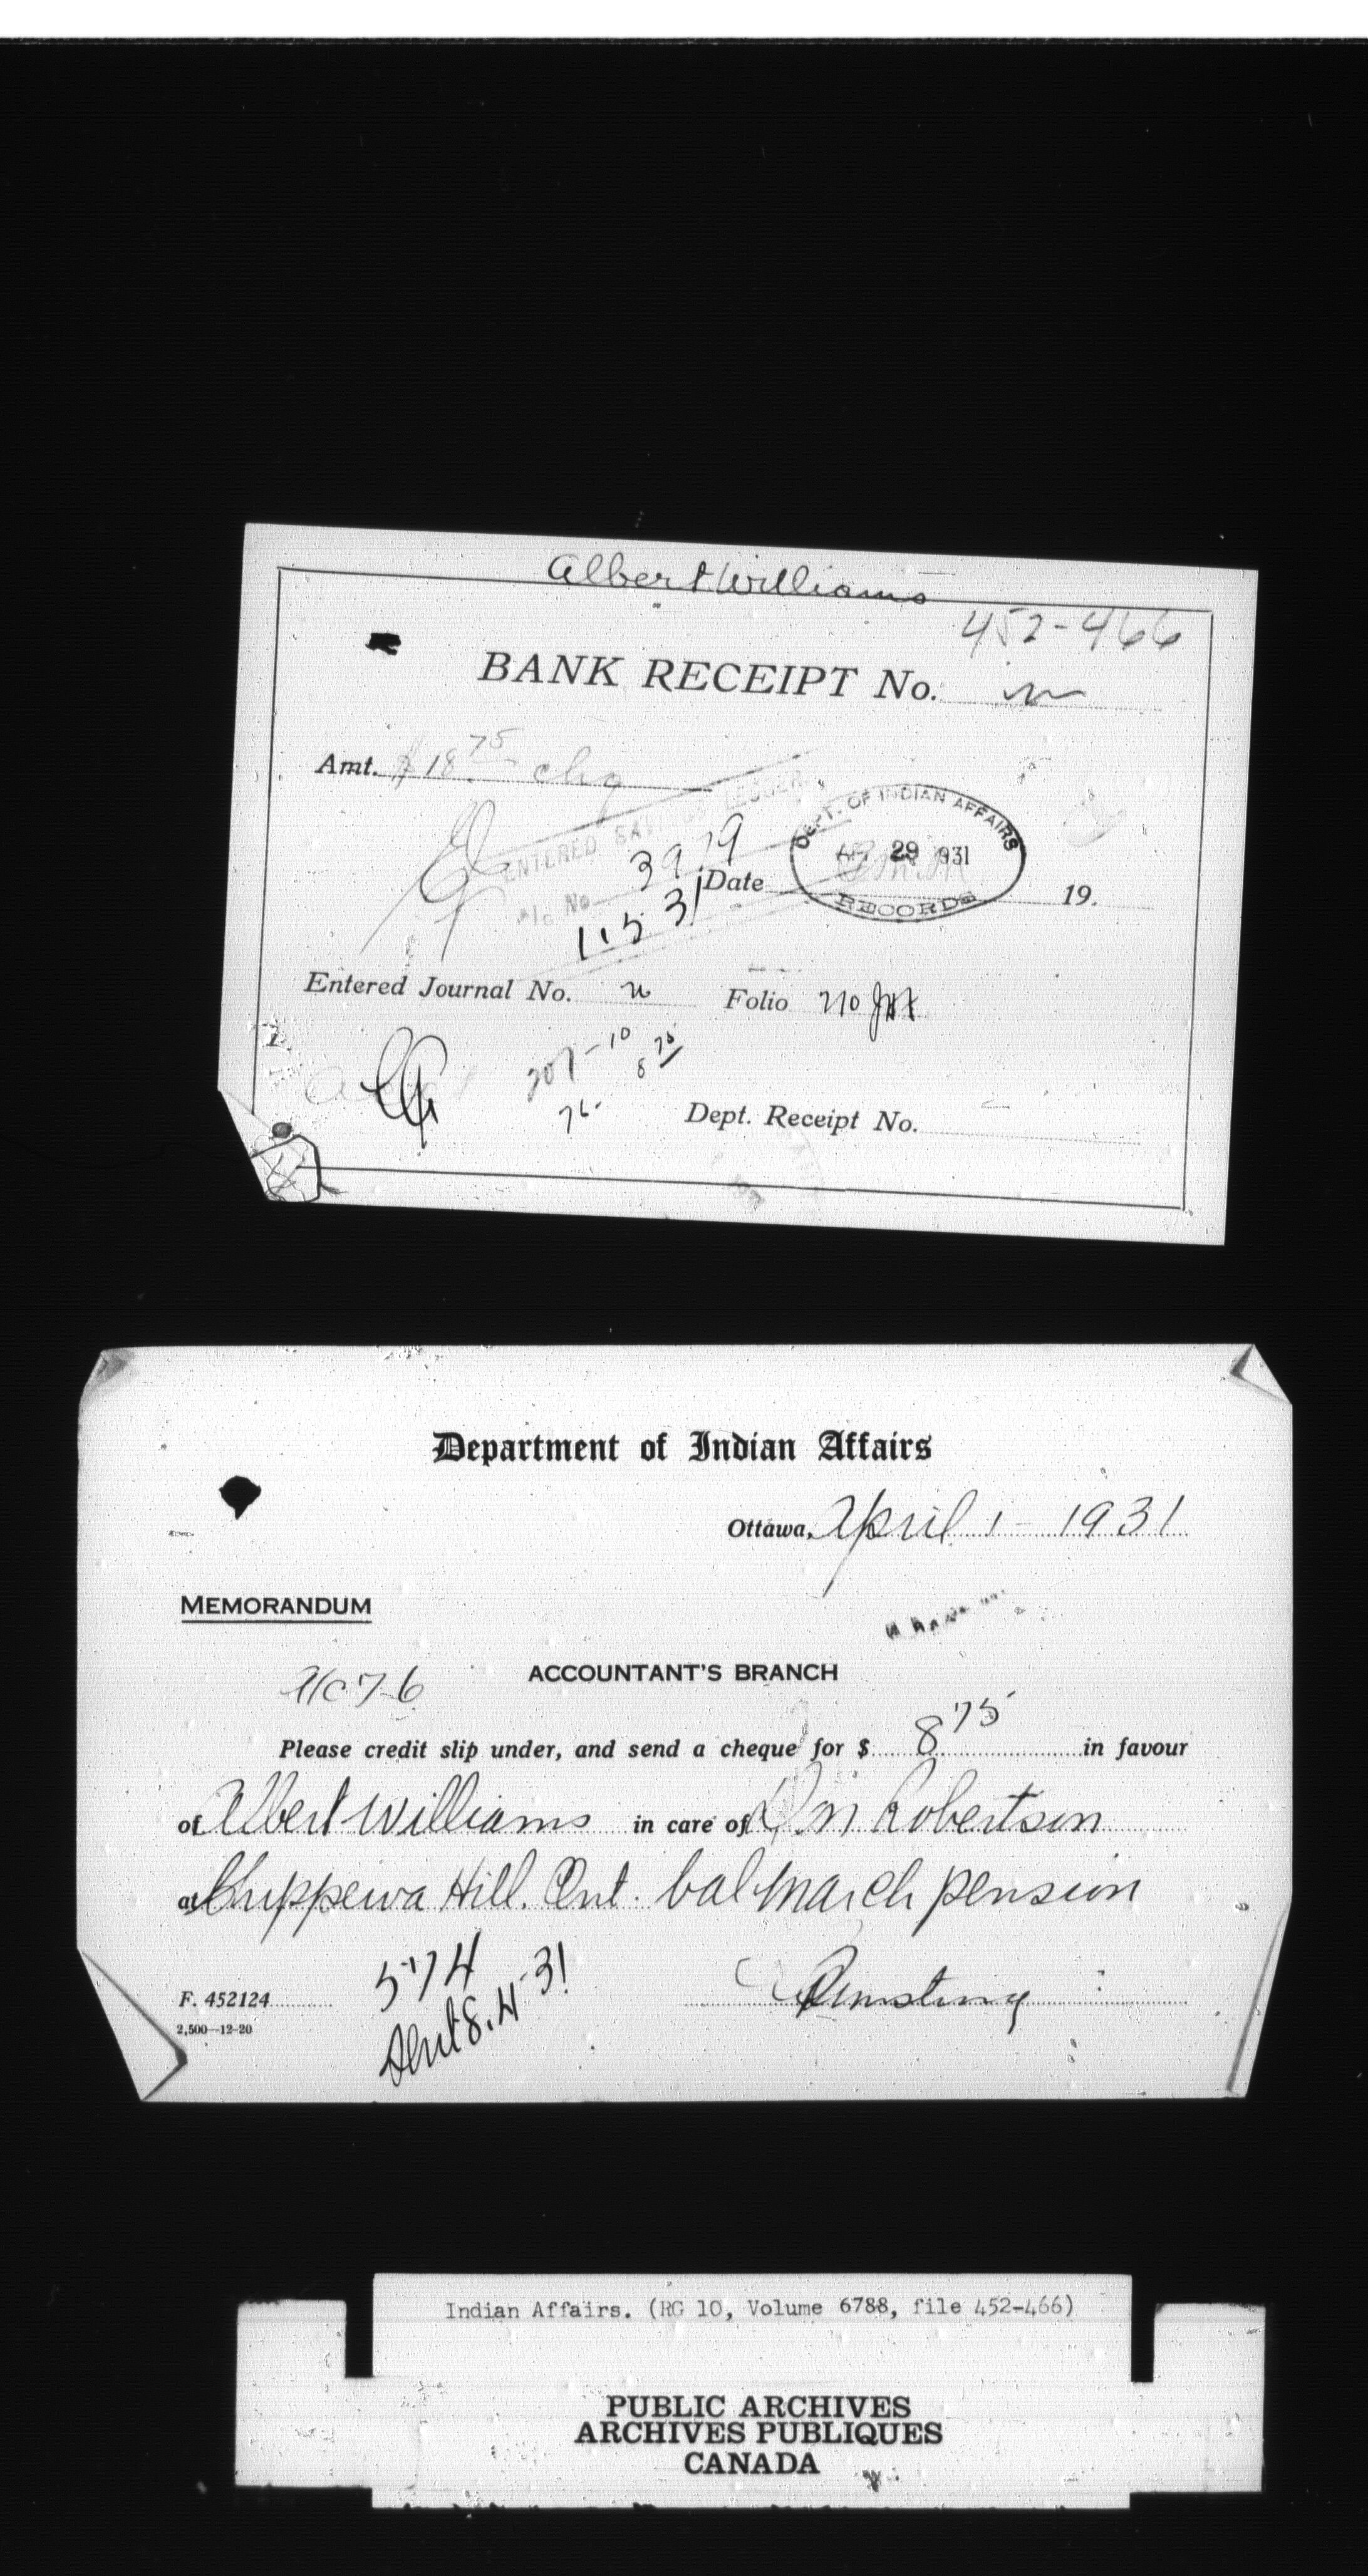 Albert Williams
452-466
BANK RECEIPT No.
Amt. $18.75 chq
ENTERED SAVINGS LEDGER
DEPT. OF INDIAN AFFAIRS
29 1931
RECORDS
A/c No. 3979
Date 19.
1.5 31
Entered Journal No. Folio
207-10
8 75
76-
Dept. Receipt No.
Department of Indian Affairs
Ottawa, April 1 - 1931
MEMORANDUM
ACCOUNTANT'S BRANCH
Please credit slip under, and send a cheque for $ 8 75 in favour
of Albert Williams in care of Robertson
at Chippewa Hill. Ont. bal March pension
574
F. 452124
Sent 8.4-31
2,500—12-20
Indian Affairs. (RG 10, Volume 6788, file 452-466)
PUBLIC ARCHIVES
ARCHIVES PUBLIQUES
CANADA